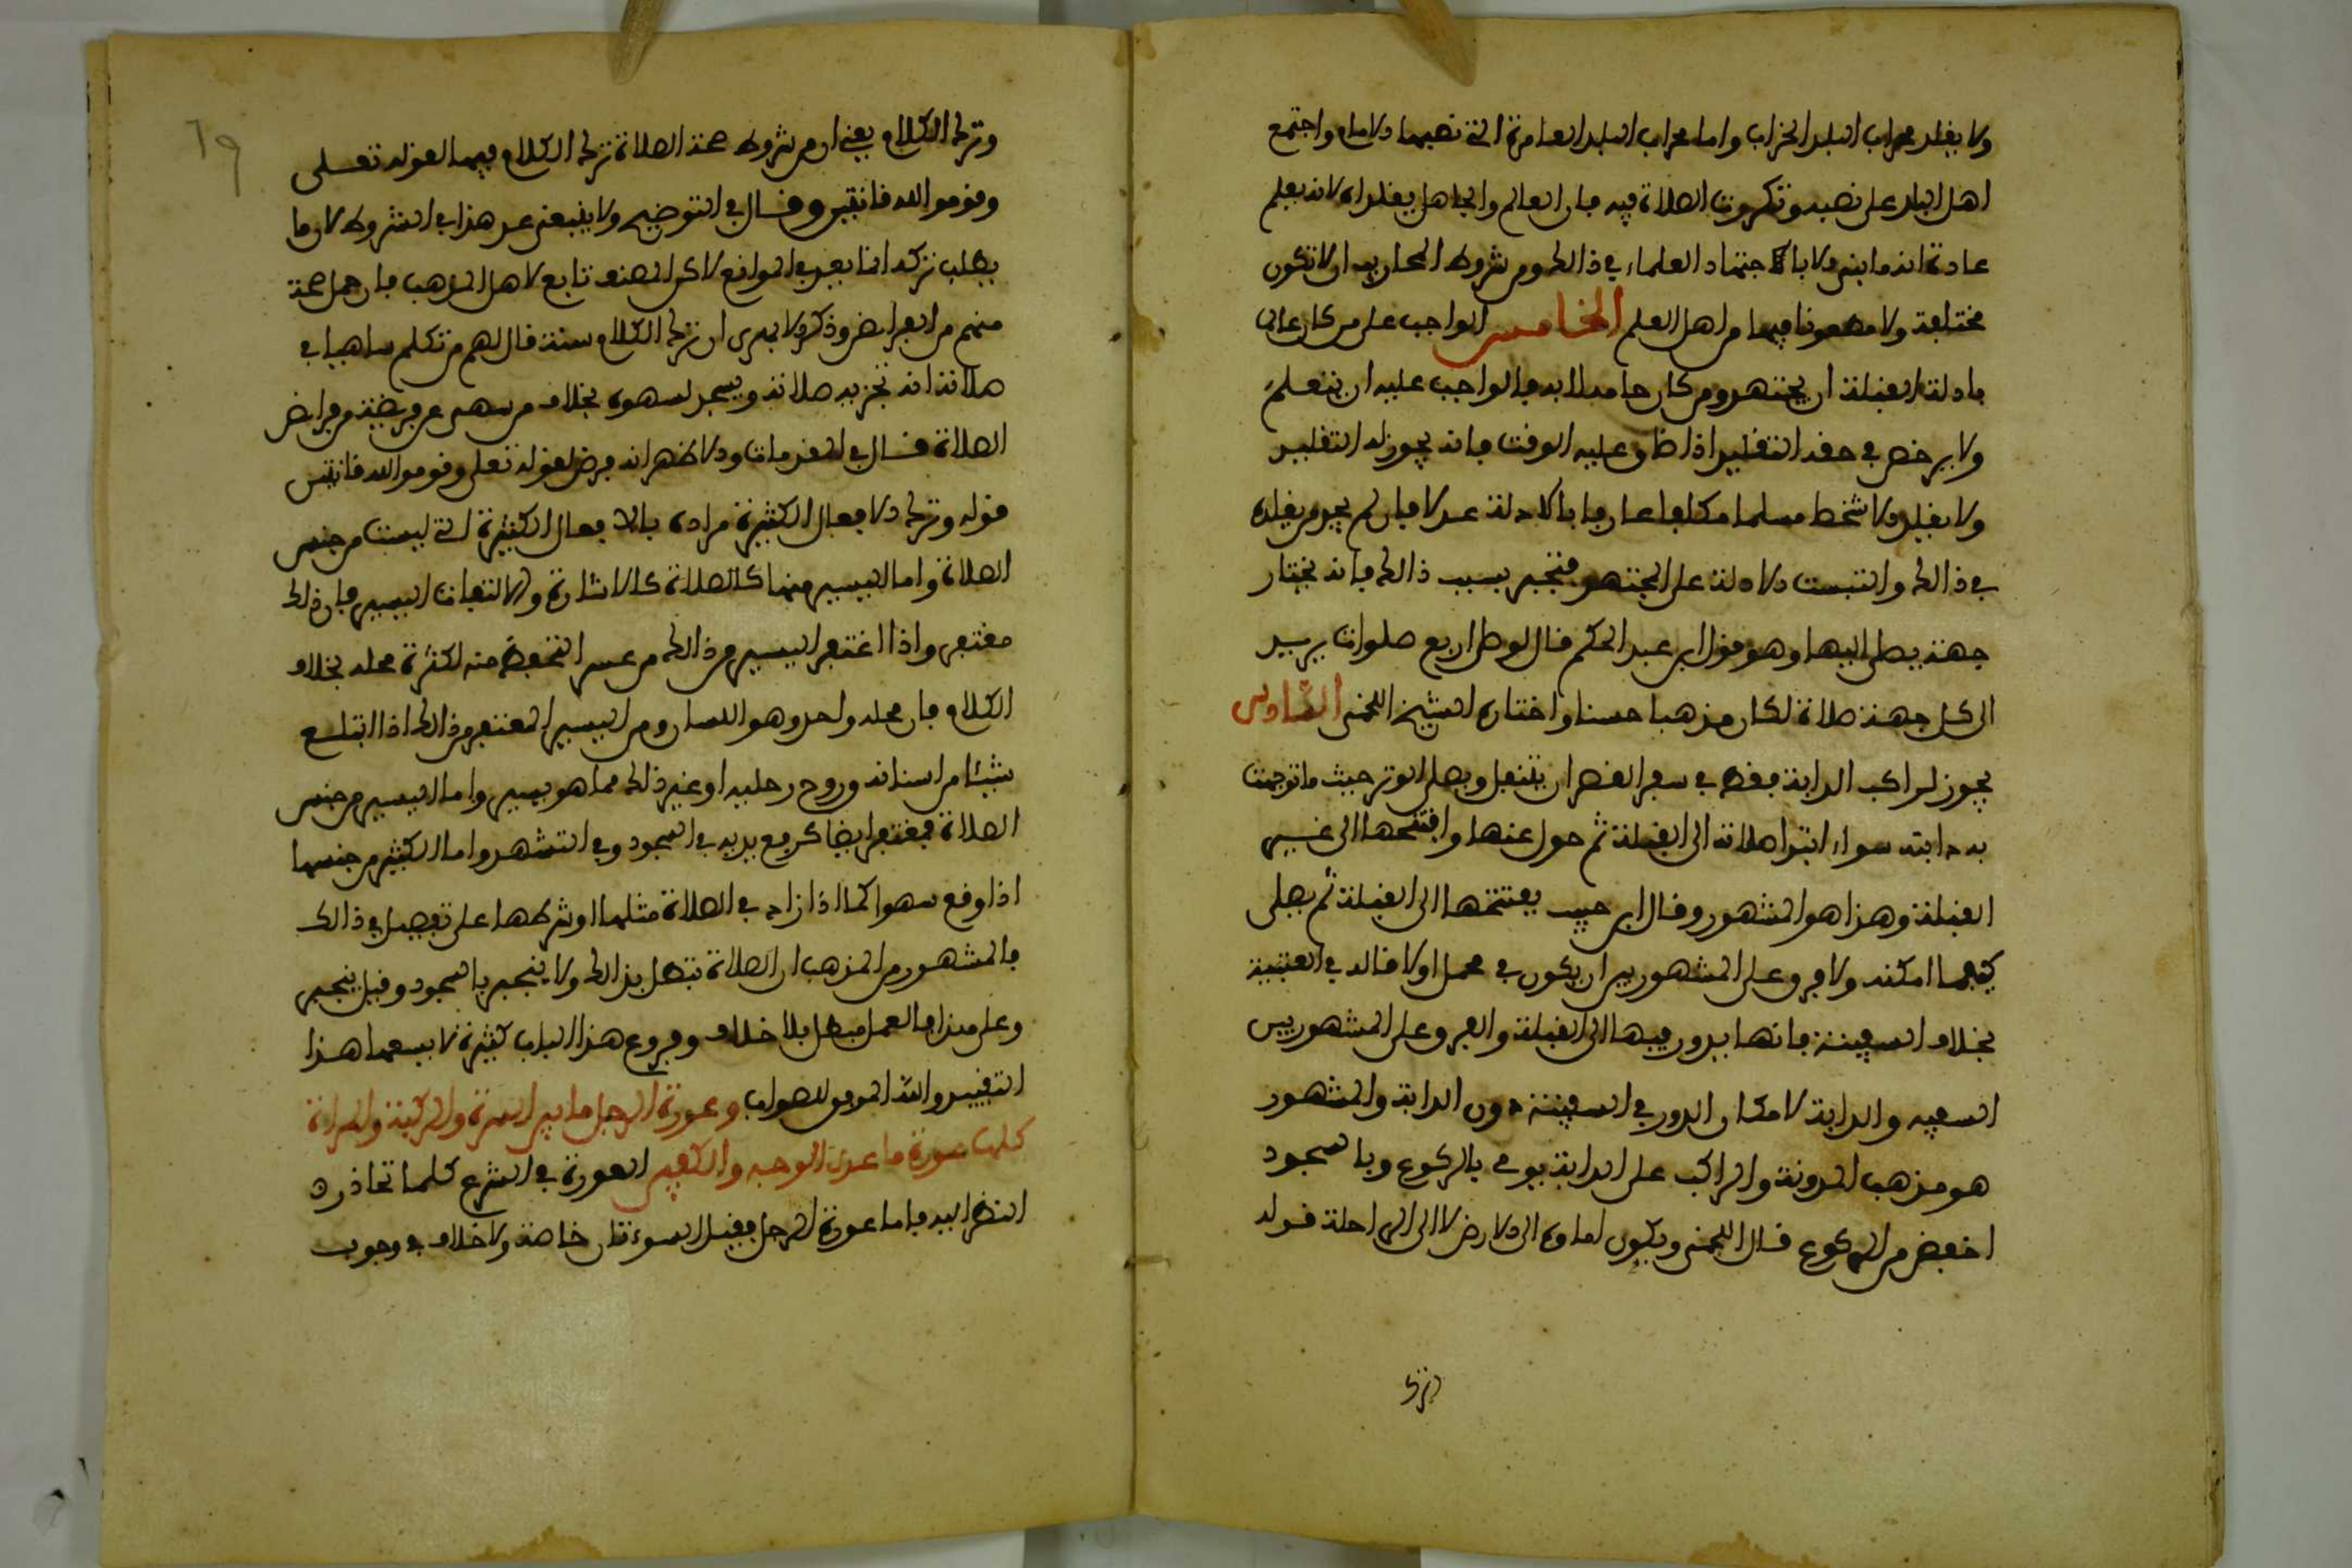 ولا يقلد محراب البلد الخراب واما محراب البلد العامرة التي نصبها الامام واجتمع
اهل البلد على نصبه وتكررت الصلاة فيه فان العالم والجاهل يقلدانه لانه يعلم
عادة انه ما بني الا باجتهاد العلماء في ذالك ومن شروط المحاريب ان لا تكون
مختلفة ولا مطعونا فيها من اهل العلم الخامس الواجب على من كان عالما
بادلة القبلة ان يجتهد ومن كان جاهلا به فالواجب عليه ان يتعلم
ولا يرخص في حقه التقليد اذا ضاق عليه الوقت فانه يجوز له التقليد
ولا يقلد الا شخصا مسلما مكلفا عارفا بالادلة عدلا فان لم يجد من يقلده
في ذالك والتبست الادلة على المجتهد فتحير بسبب ذالك فانه يختار
جهة يصلي اليها وهو قول ابن عبد الحكم قال لو صلى اربع صلوات يريد
الى كل جهة صلاة لكان مذهبا حسنا واختاره الشيخ اللخمي السادس
يجوز لراكب الدابة فقط في سفر القصر ان يتنفل ويصلي الوتر حيث ما توجهت
به دابته سواء ابتدا صلاته الى القبلة ثم حول عنها وافتتحها الى غير
القبلة وهذا هو المشهور وقال ابن حبيب يفتتحها الى القبلة ثم يصلي
كيفما امكنه ولا فرق على المشهور بين ان يكون في محمل او لا قاله في العتبية
بخلاف السفينة فانها يدور فيها الى القبلة والفرق على المشهور بين
السفينة والدابة لامكان الدور في السفينة دون الدابة والمشهور
هو مذهب المدونة والراكب على الدابة يومي بالركوع وبالسجود
اخفض من الركوع قال اللخمي ويكون ايماوه الى الارض لا الى الراحلة قوله
وترك
٦٩
وترك الكلام يعني ان من شروط صحة الصلاة ترك الكلام فيها لقوله تعلى
وقوموا لله قانتين وقال في التوضيح ولا ينبغي عد هذا في الشروط لان ما
يطلب تركه انما يعد في الموانع لاكن المصنف تابع لاهل المذهب فان جل صحة
منهم من الفرائض وذكر ولا يدرى ان ترك الكلام سنة قال لهم من تكلم ساهيا في
صلاته انه تجزيه صلاته ويسجد لسهوه بخلاف من سهى عن فريضة من فرائض
الصلاة قال في المقدمات والاظهر انه فرض لقوله تعلى وقوموا لله قانتين
قوله وترك الافعال الكثيرة مراده بالافعال الكثيرة التي ليست من جنس
الصلاة واما اليسير منها كالصلاة كالاشارة والالتفات اليسير فان ذالك
مغتفر واذا اغتفر اليسير من ذالك من عسر التحفظ منه لكثرة محله بخلاف
الكلام فان محله واحد وهو اللسان ومن اليسير المغتفر من ذالك اذا ابتلع
شيئا من اسنانه وروح رجليه او غير ذالك مما هو يسير واما اليسير من جنس
الصلاة فمغتفر ايضا كرفع يديه في السجود وفي التشهد واما الكثير من جنسها
اذا وقع سهوا كما اذا زاد في الصلاة مثلها او شرطها على تفصيل في ذالك
فالمشهور من المذهب ان الصلاة تبطل بذالك ولا ينجبر بالسجود وقيل ينجبر
وعلى هذا فالعمل مبطل بلا خلاف وفروع هذا الباب كثيرة لا يسعها هذا
التقييد والله الموفق للصواب وعورة الرجل ما بين السرة والركبة والمراة
كلها عورة ما عدى الوجه والكفين العورة في الشرع كلما تحاذره
النظر اليه فاما عورة الرجل فقيل السوءتان خاصة ولا خلاف في وجوب